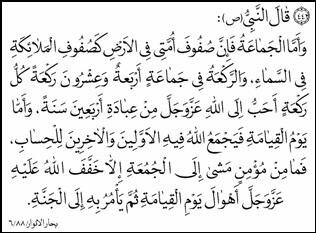 (٤٤) قَالَ النَّبِيُّ (ص):
وَأَمَّا الْجَمَاعَةُ فَإِنَّ صُفُوفَ أُمَّتِي فِي الْأَرْضِ كَصُفُوفِ الْمَلَائِكَةِ
فِي السَّمَاءِ، وَالرَّكْعَةُ فِي جَمَاعَةٍ أَرْبَعَةٌ وَعِشْرُونَ رَكْعَةً كُلُّ
رَكْعَةٍ أَحَبُّ إِلَى اللهِ عَزَّوَجَلَّ مِنْ عِبَادَةِ أَرْبَعِينَ سَنَةً، وَأَمَّا
يَوْمُ الْقِيَامَةِ فَيَجْمَعُ اللهُ فِيهِ الْأَوَّلِينَ وَالْآخِرِينَ لِلْحِسَابِ،
فَمَا مِنْ مُؤْمِنٍ مَشَىٰ إِلَى الْجُمُعَةِ إِلَّا خَفَّفَ اللهُ عَلَيْهِ
عَزَّوَجَلَّ أَهْوَالَ يَوْمِ الْقِيَامَةِ ثُمَّ يَأْمُرُ بِهِ إِلَى الْجَنَّةِ.
بحارالانوار/٦/٨٨